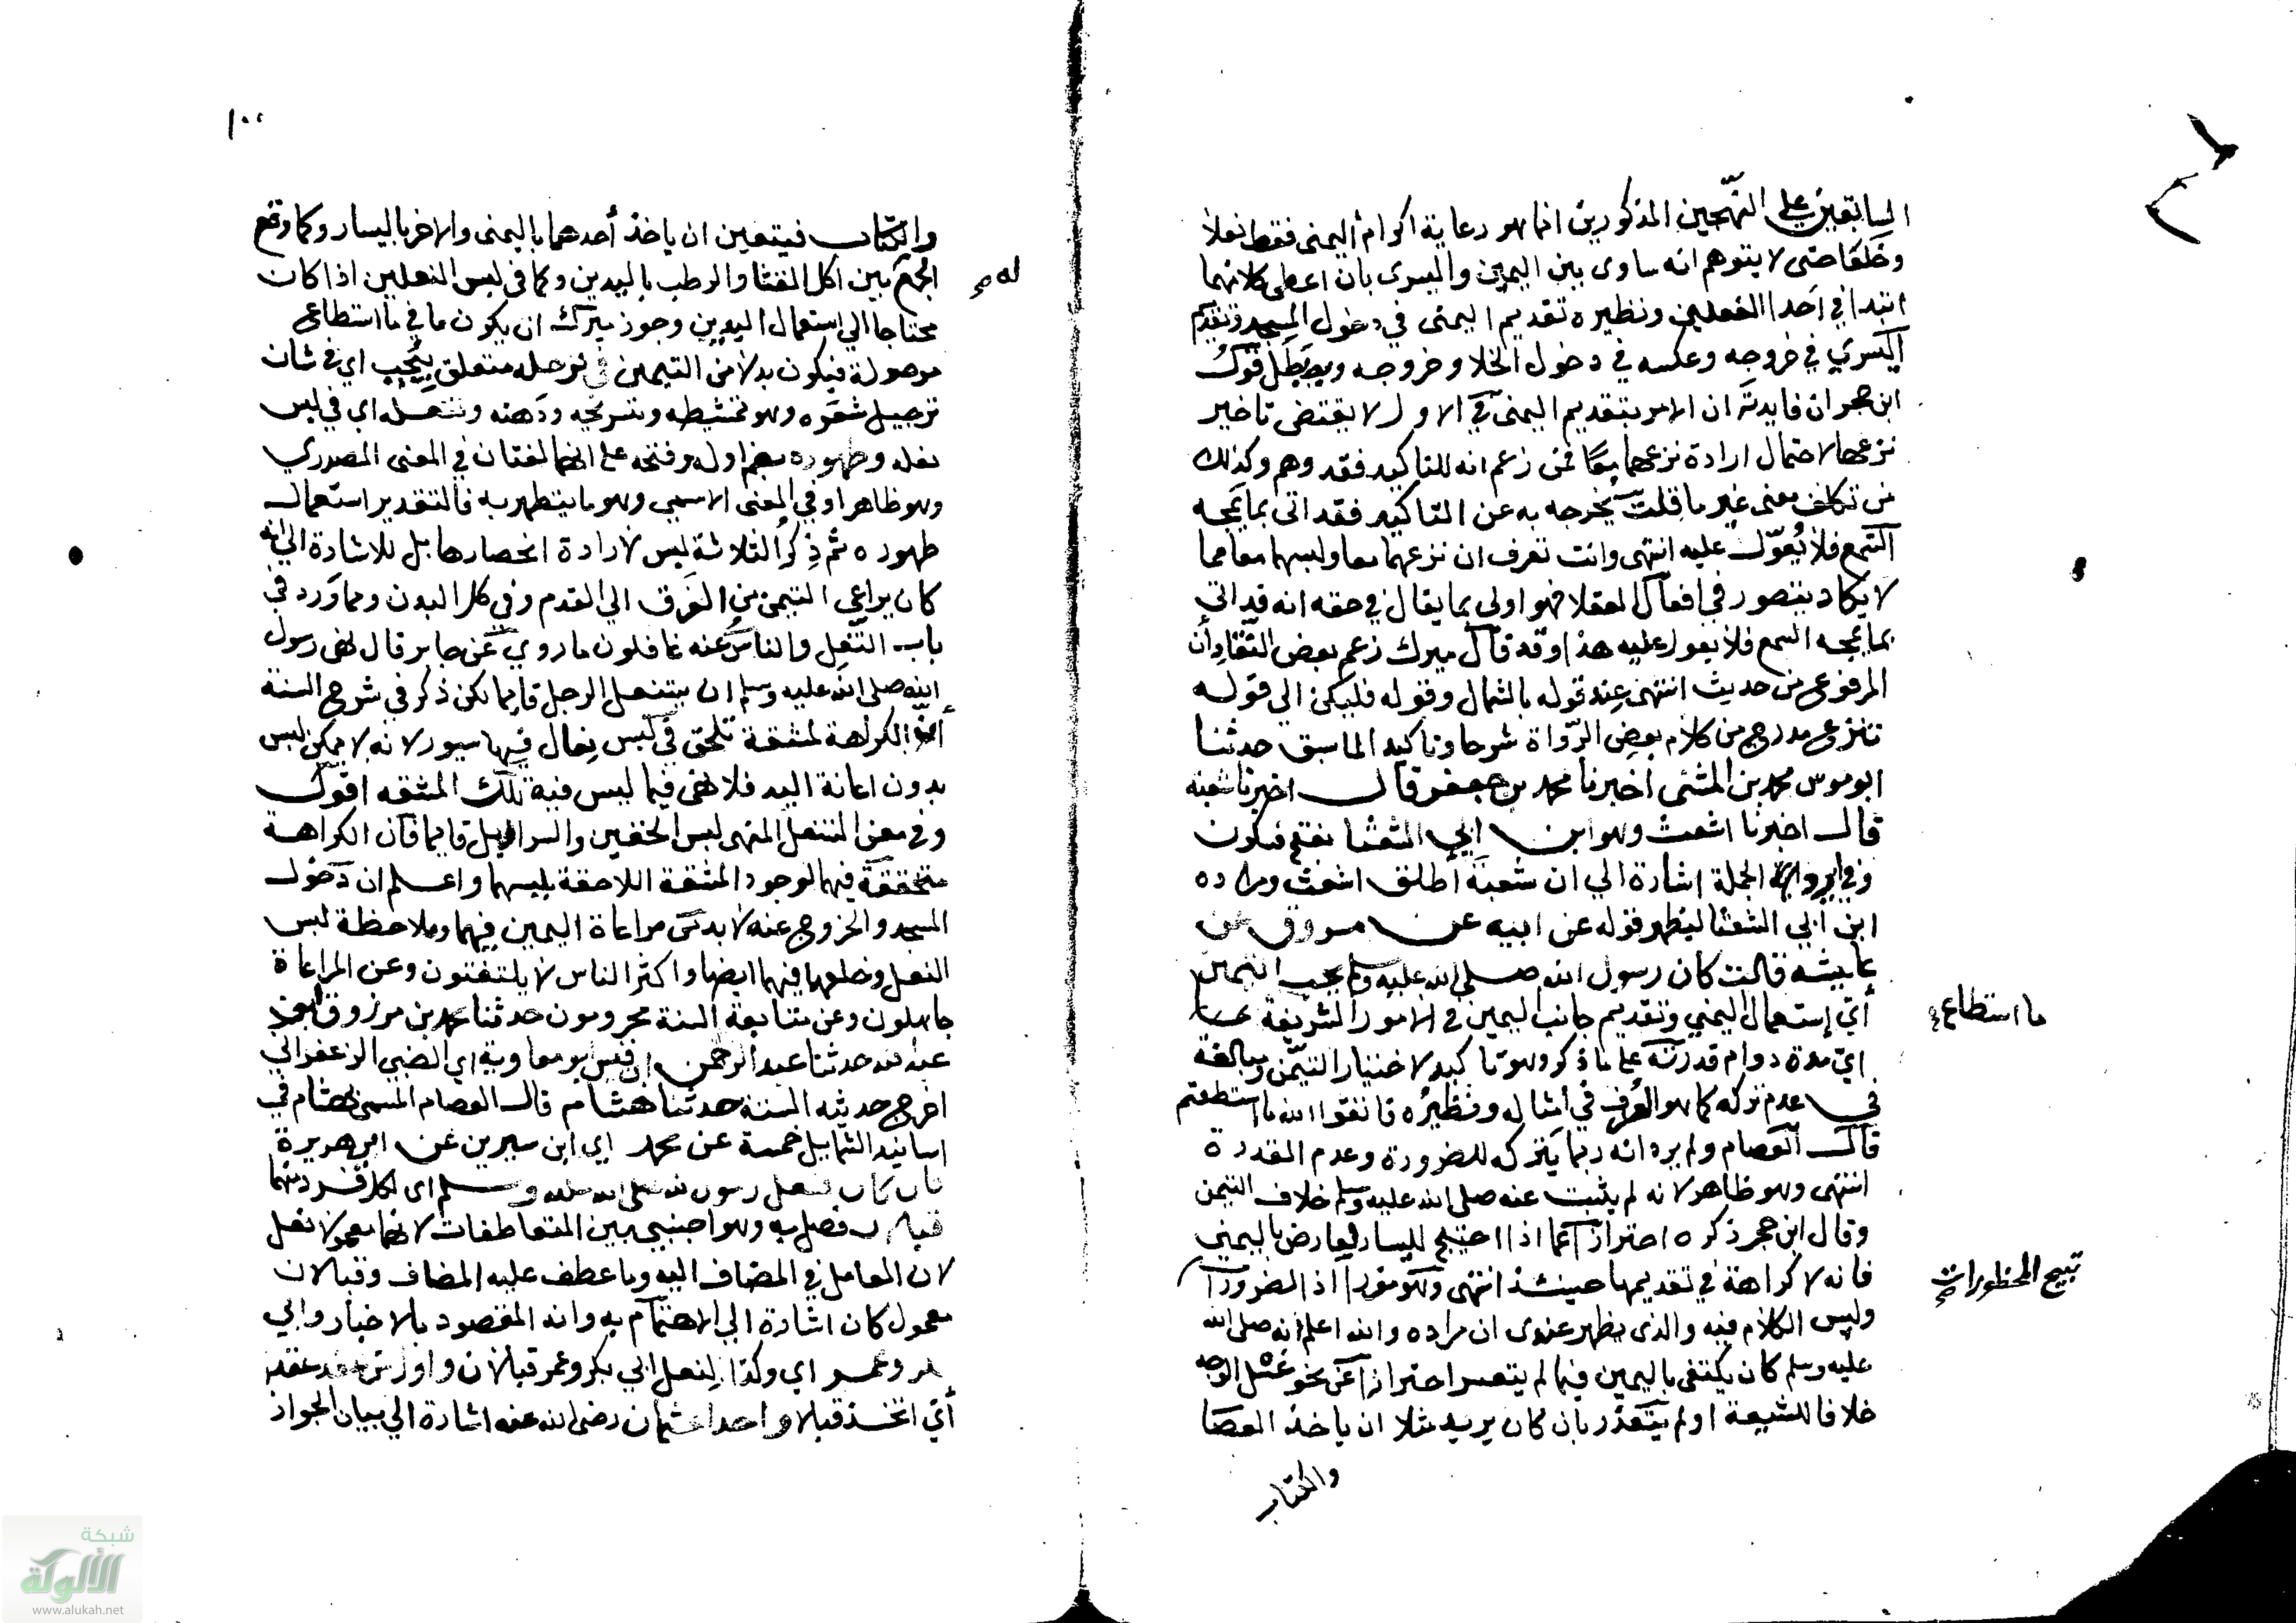 السابقين على النهجين المذكورين انما هو رعاية اكرام اليمنى فقط نعلا
وخلعا حتى لا يتوهم انه ساوى بين اليمين واليسرى بان اعطى كلا منهما
ابتدا في احد الفعلين ونظيره تقديم اليمنى في دخول المسجد وتقديم
اليسري في خروجه وعكسه في دخول الخلا وخروجه وبه يبطل قول
ابن حجر ان فايدته ان الامر بتقديم اليمنى في الاول لا يقتضى تاخير
نزعها لاحتمال ارادة نزعهما معا فمن زعم انه للتاكيد فقد وهم وكذلك
من تكلف معنى غير ما قلت يخرجه به عن التاكيد فقد اتى بما يمجه
السمع فلا يعول عليه انتهى وانت تعرف ان نزعهما معا ولبسهما معا مما
لا يكاد يتصور في افعال العقلا فهو اولى بما يقال في حقه انه قد اتى
بما يمجه السمع فلا يعول عليه هذا وقد قال ميرك زعم بعض النقاد ان
المرفوع من حديث انتهى عند قوله بالشمال وقوله فليكن الى قوله
تنزع مدرج من كلام بعض الرواة شرحا وتاكيدا لما سبق حدثنا
ابو موسى محمد بن المثنى اخبرنا محمد بن جعفر قال اخبرنا شعبة
قال اخبرنا اشعث وهو ابن ابي الشعثا بفتح فسكون
وفي ايراد الجملة اشارة الي ان شعبة اطلق اشعث ومراده
ابن ابي الشعثا ليظهر قوله عن ابيه عن مسروق عن
عايشه قالت كان رسول الله صلى الله عليه وسلم يحب التيمن
أي استعمال اليمني وتقديم جانب اليمين في الامور الشريفة
ما استطاع
اي مدة دوام قدرته على ما ذكر وهو تاكيد لاختيار التيمن ومبالغة
في عدم تركه كما هو العرف في امثاله ونظيره فاتقوا الله ما استطعتم
قال العصام ولم يرد انه ربما يتركه للضرورة وعدم القدرة
انتهى وهو ظاهر لانه لم يثبت عنه صلى الله عليه وسلم خلاف التيمن
وقال ابن حجر ذكره احترازا عما اذا احتيج لليسار لعارض باليمني
فانه لا كراهة في تقديمها حينئذ انتهى وهو مقرر اذ الضرورات
تبيح المحظورات
وليس الكلام فيه والذى يظهر عندى ان مراده والله اعلم انه صلى الله
عليه وسلم كان يكتفى باليمين فيما لم يتعسر احترازا عن نحو غسل الوجه
خلافا للشيعة او لم يتعذر بان كان يريد مثلا ان ياخذ العصا
والكتاب
١٠٠
والكتاب فيتعين ان ياخذ أحدهما باليمنى والاخر باليسار وكما وقع
له
الجمع بين اكل القثا والرطب باليدين وكما في لبس النعلين اذا كان
محتاجا الي استعمال اليدين وجوز ميرك ان يكون ما في ما استطاع
موصولة فيكون بدلا من التيمن في ترجله متعلق بيحب اي في شان
ترجيل شعره وهو تمشيطه وتسريحه ودهنه وتنعله اي في لبس
نعله وطهوره بضم اوله وفتحه على انهما لغتان في المعنى المصدري
وهو ظاهر او في المعنى الاسمي وهو ما يتطهر به فالتقدير استعمال
طهوره ثم ذكر الثلاثة ليس لارادة انحصارها بل للاشارة الي انه
كان يراعي التيمن من الفرق الي القدم وفي كل البدن ومما ورد في
باب التنعل والناس عنه غافلون ما روي عن جابر قال نهى رسول
الله صلى الله عليه وسلم ان ينتعل الرجل قايما لكن ذكر في شرح السنة
ان الكراهة لمشقة تلحق في لبس نعال فيها سيور لانه لا يمكن لبس
بدون اعانة اليد فلا نهى فيما ليس فيه تلك المشقه اقول
وفي معنى التنعل المنهى لبس الخفين والسراويل قايما فان الكراهة
متحققة فيهما لوجود المشقة اللاحقة بلبسهما واعلم ان دخول
المسجد والخروج عنه لا بد من مراعاة اليمين فيهما وملاحظة لبس
النعل وخلعها فيهما ايضا واكثر الناس لا يلتفتون وعن المراعاة
جاهلون وعن متابعة السنة محرومون حدثنا محمد بن مرزوق ابو
عبد الله حدثنا عبد الرحمن بن قيس ابو معاوية اي الضبي الزعفراني
اخرج حديثه الستة حدثنا هشام قال العصام المسمى بهشام في
اسانيد الشمايل خمسة عن محمد اي ابن سيرين عن ابي هريرة
قال كان لنعل رسول الله صلى الله عليه وسلم اى لكل فرد منهما
قبالان فصل به وهو اجنبي بين المتعاطفات لانهما معمولا نعل
لان العامل في المضاف اليه وما عطف عليه المضاف وقبالان
معمول كان اشارة الي الاهتمام به وانه المقصود بالاخبار وابي
بكر وعمر اي وكذا لنعل ابي بكر وعمر قبالان واول من عقد عقدا
أي اتخذ قبالا واحدا عثمان رضى الله عنه اشارة الي بيان الجواز
شبكة
الألوكة
www.alukah.net